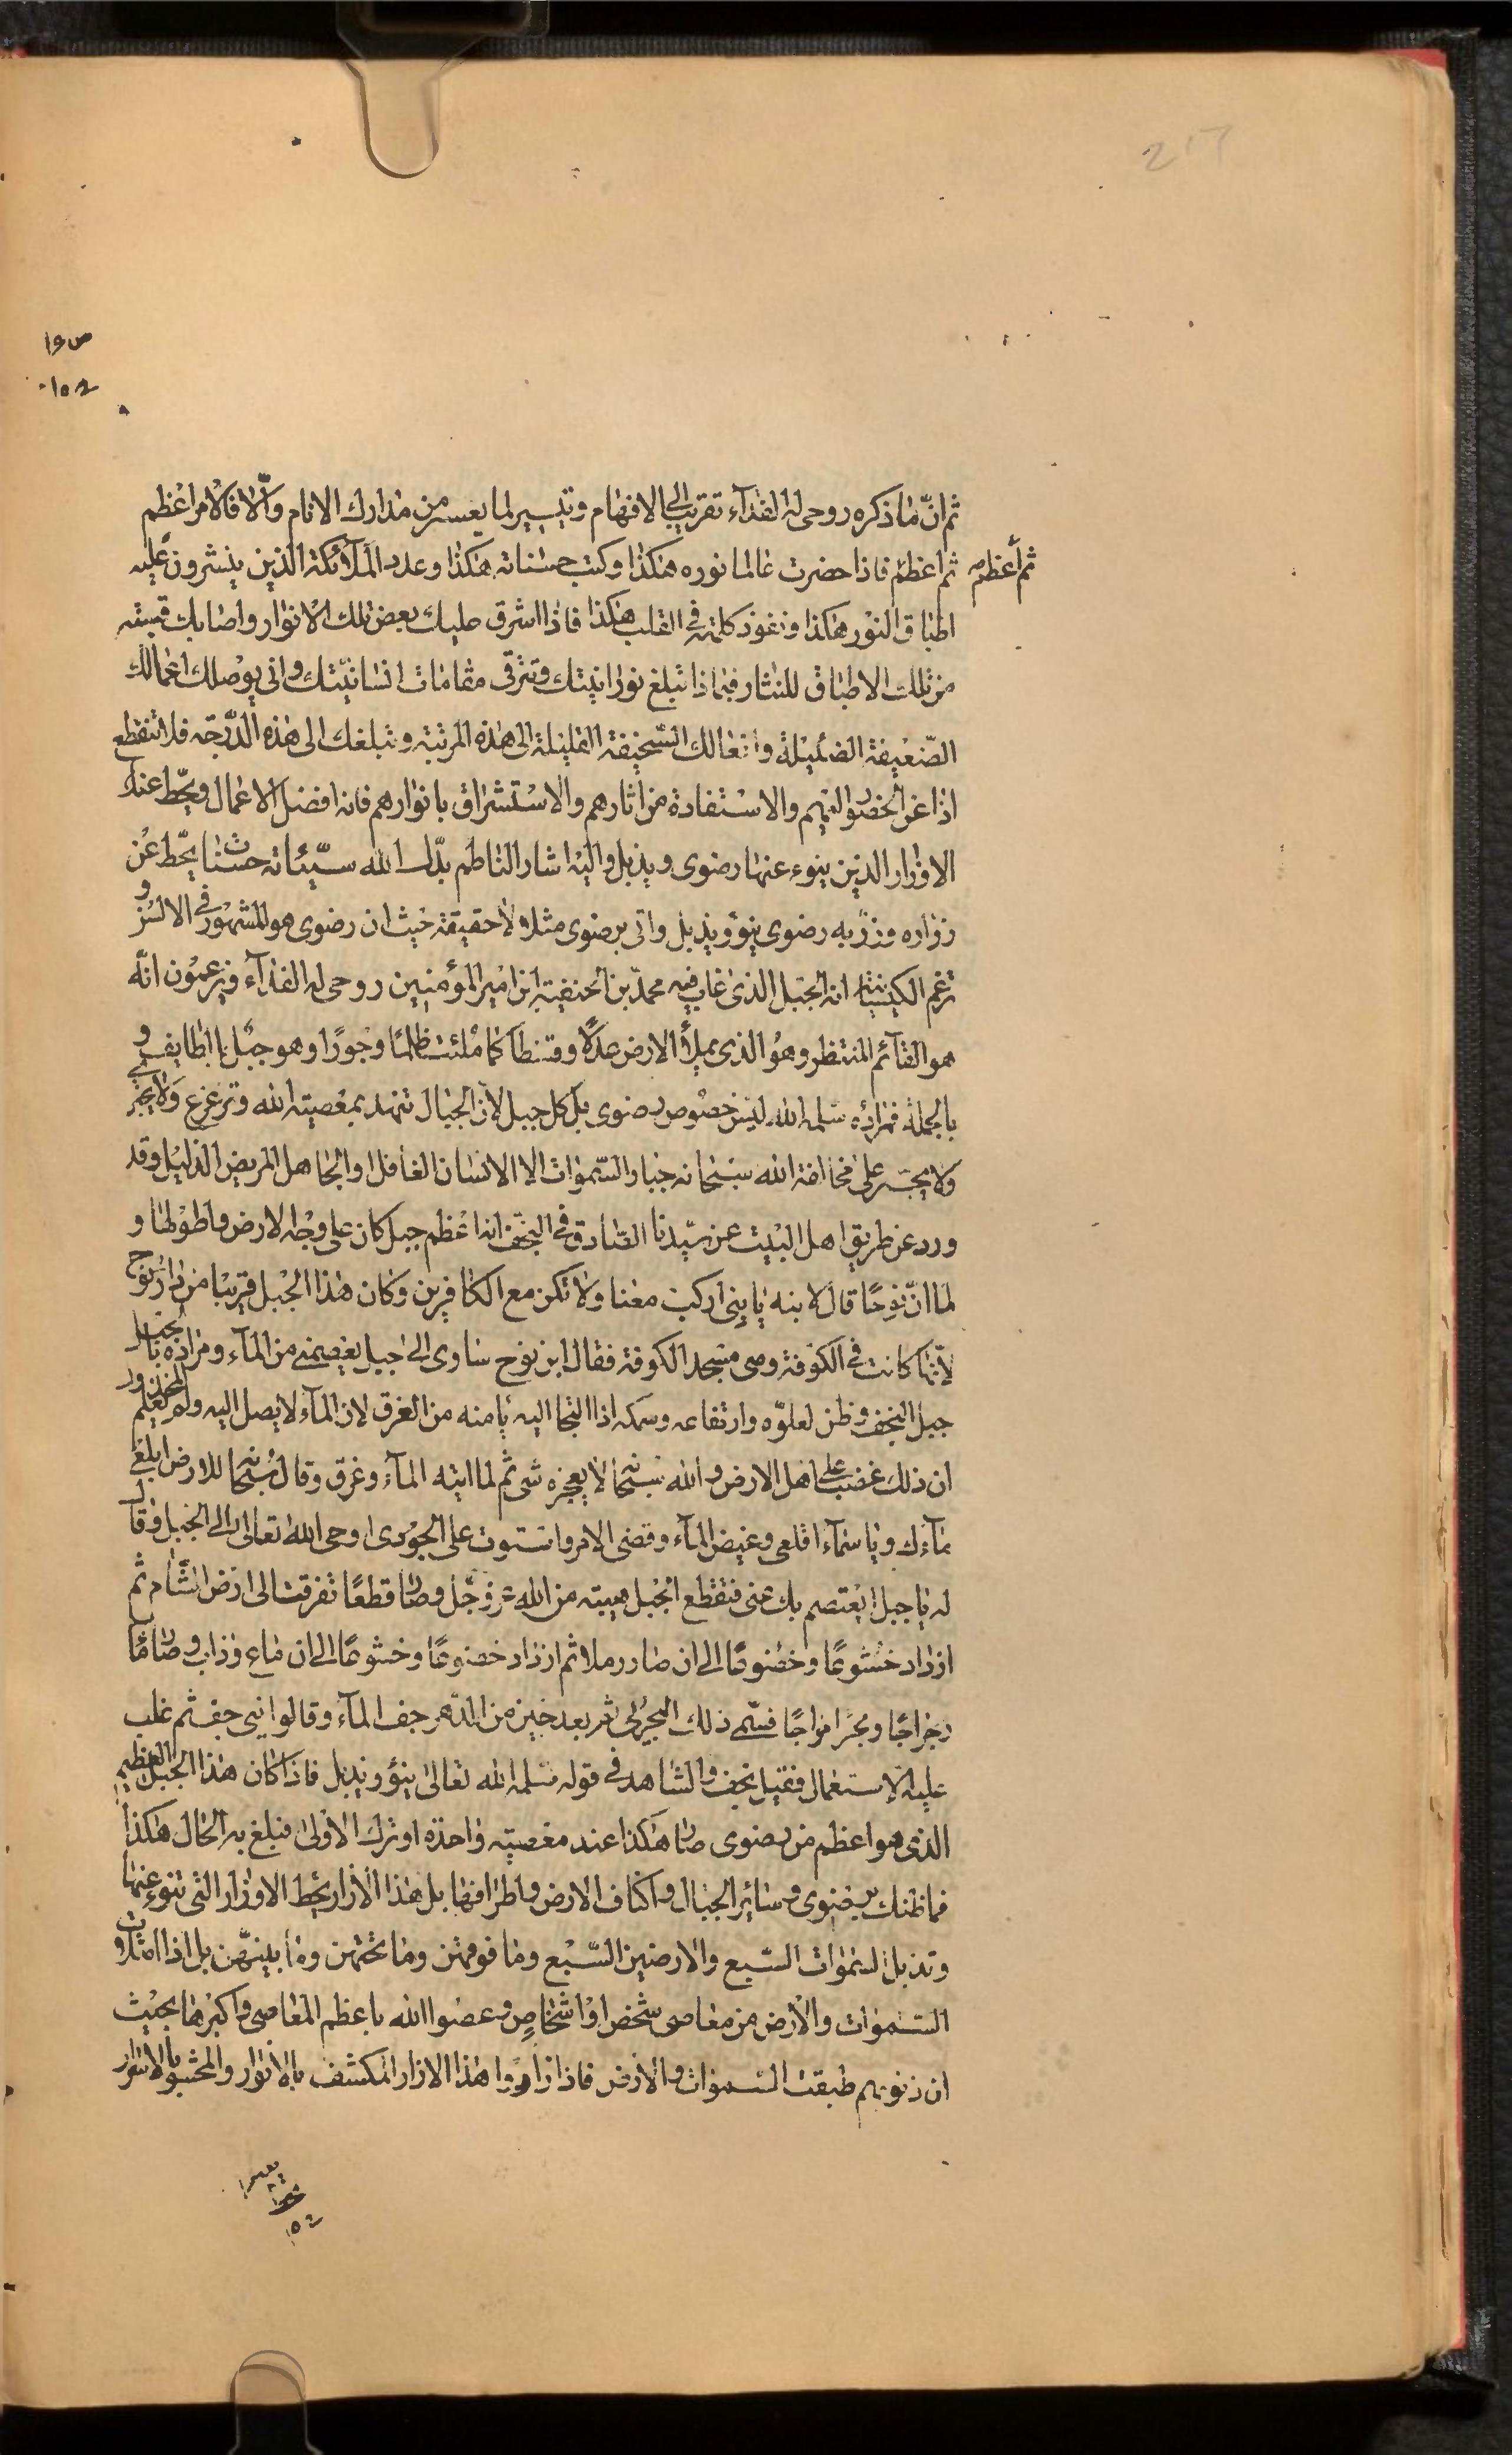 217
ص ١٩
١٥٢
ثم انّ ما ذكره روحي له الفدآء تقريب الى الافهام وتيسير لما يعسر من مدارك الانام والّا فالامر اعظم
ثم أعظم
ثم اعظم فاذا حضرت عالما نوره هكذا وكتب حسناته هكذا وعدد الملآئكة الذين ينشرون عليه
اطباق النور هكذا ونفوذ كلمته في القلب هكذا فاذا اشرق عليك بعض تلك الانوار واصابك قبسة
من تلك الاطباق للنثار فبماذا تبلغ نورانيتك وتترقى مقامات انسانيّتك وانى يوصلك اعمالك
الضّعيفة الضئيلة وافعالك السّخيفة القليلة الى هذه المرتبة وتبلغك الى هذه الدّرجة فلا تنقطع
اذا عن الحضور اليهم والاستفادة من اثارهم والاستشراق بانوارهم فانه افضل الاعمال ويحّط عنك
الاوزار الذين ينوء عنها رضوى ويذبل واليه اشار الناظم بدّل الله سيّئاته حسنات يحّط عن
زواره وزر به رضوى ينوؤ ويذبل واتى برضوى مثلا لا حقيقة حيث ان رضوى هو المشهور في الالسن و
تزعم الكيسانية انه الجبل الذى غاب فيه محمد بن الحنفية ابن امير المؤمنين روحي له الفدآء ويزعمون انّه
هو القآئم المنتظر وهو الذى يملأ الارض عدلًا وقسطآ كما ملئت ظلمًا وجورًا وهو جبل بالطايف و
بالجملة فمراده سلمه الله ليس خصوص رضوى بل كل جبل لان الجبال تنهد بمعصية الله وتزعزع ولا يجترى
ولا يجسر على مخالفة الله سبحانه جبار السّموات الا الانسان الغافل والجاهل المريض الذليل وقد
ورد عن طريق اهل البيت عن سيّدنا الصّادق في النجف انه اعظم جبل كان على وجه الارض واطولها و
لما انّ نوحًا قال لابنه يا بنى اركب معنا ولا تكن مع الكافرين وكان هذا الجبل قريبًا من دار نوح
لانّها كانت في الكوفة وهي مسجد الكوفة فقال ابن نوح ساوى الى جبل يعصمنى من المآء ومراده بالجبل
جبل النجف وظن لعلوّه وارتفاعه وسمكه اذا التجا اليه يأمنه من الغرق لان المآء لا يصل اليه ولم يعلم المخذول
ان ذلك غضب على اهل الارض والله سبحانه لا يعجزه شى ثم لما اتيه المآء وغرق وقال سبحانه للارض ابلعى
مآءك ويا سمآء اقلعى وغيض المآء وقضى الامر واستوت على الجودى اوحى الله تعالى الى الجبل وقال
له يا جبل ايعتصم بك عنى فتقطع الجبل هيبته من الله عز وجّل وصار قطعًا تفرقت الى ارض الشّام ثم
ازداد خشوعًا وخضوعًا الى ان صار رملا ثم ازداد خضوعًا وخشوعًا الى ان ماع وذاب وصار مآءً
رجراجًا وبحرًا مواجًا فسّمى ذلك البحر نى ثم بعد حين من الدّهر جف المآء وقالوا نى جف ثم غلب
عليه الاستعمال فقيل نجف والشاهد في قوله سلمه الله تعالى ينؤ ويذبل فاذا كان هذا الجبل العظيم
الذى هو اعظم من رضوى صار هكذا عند معصيته واحدة او ترك الاولى فبلغ به الحال هكذا
فما ظنك برضوى وسائر الجبال واكناف الارض واطرافها بل هذا الازار يحّط الاوزار التى تنوء عنها
وتذبل السموات السّبع والارضين السّبع وما فوقهن وما تحتهن وما بينهّن بل اذا امتلات
السّموات والارض من معاصى شخص او اشخاصٍ وعصوا الله باعظم المعاصى واكبرها بحيث
ان ذنوبهم طبقت السّموات والارض فاذا زاروا هذا الازار المكشف بالانوار والمحشو بالاسرار
١٥٢